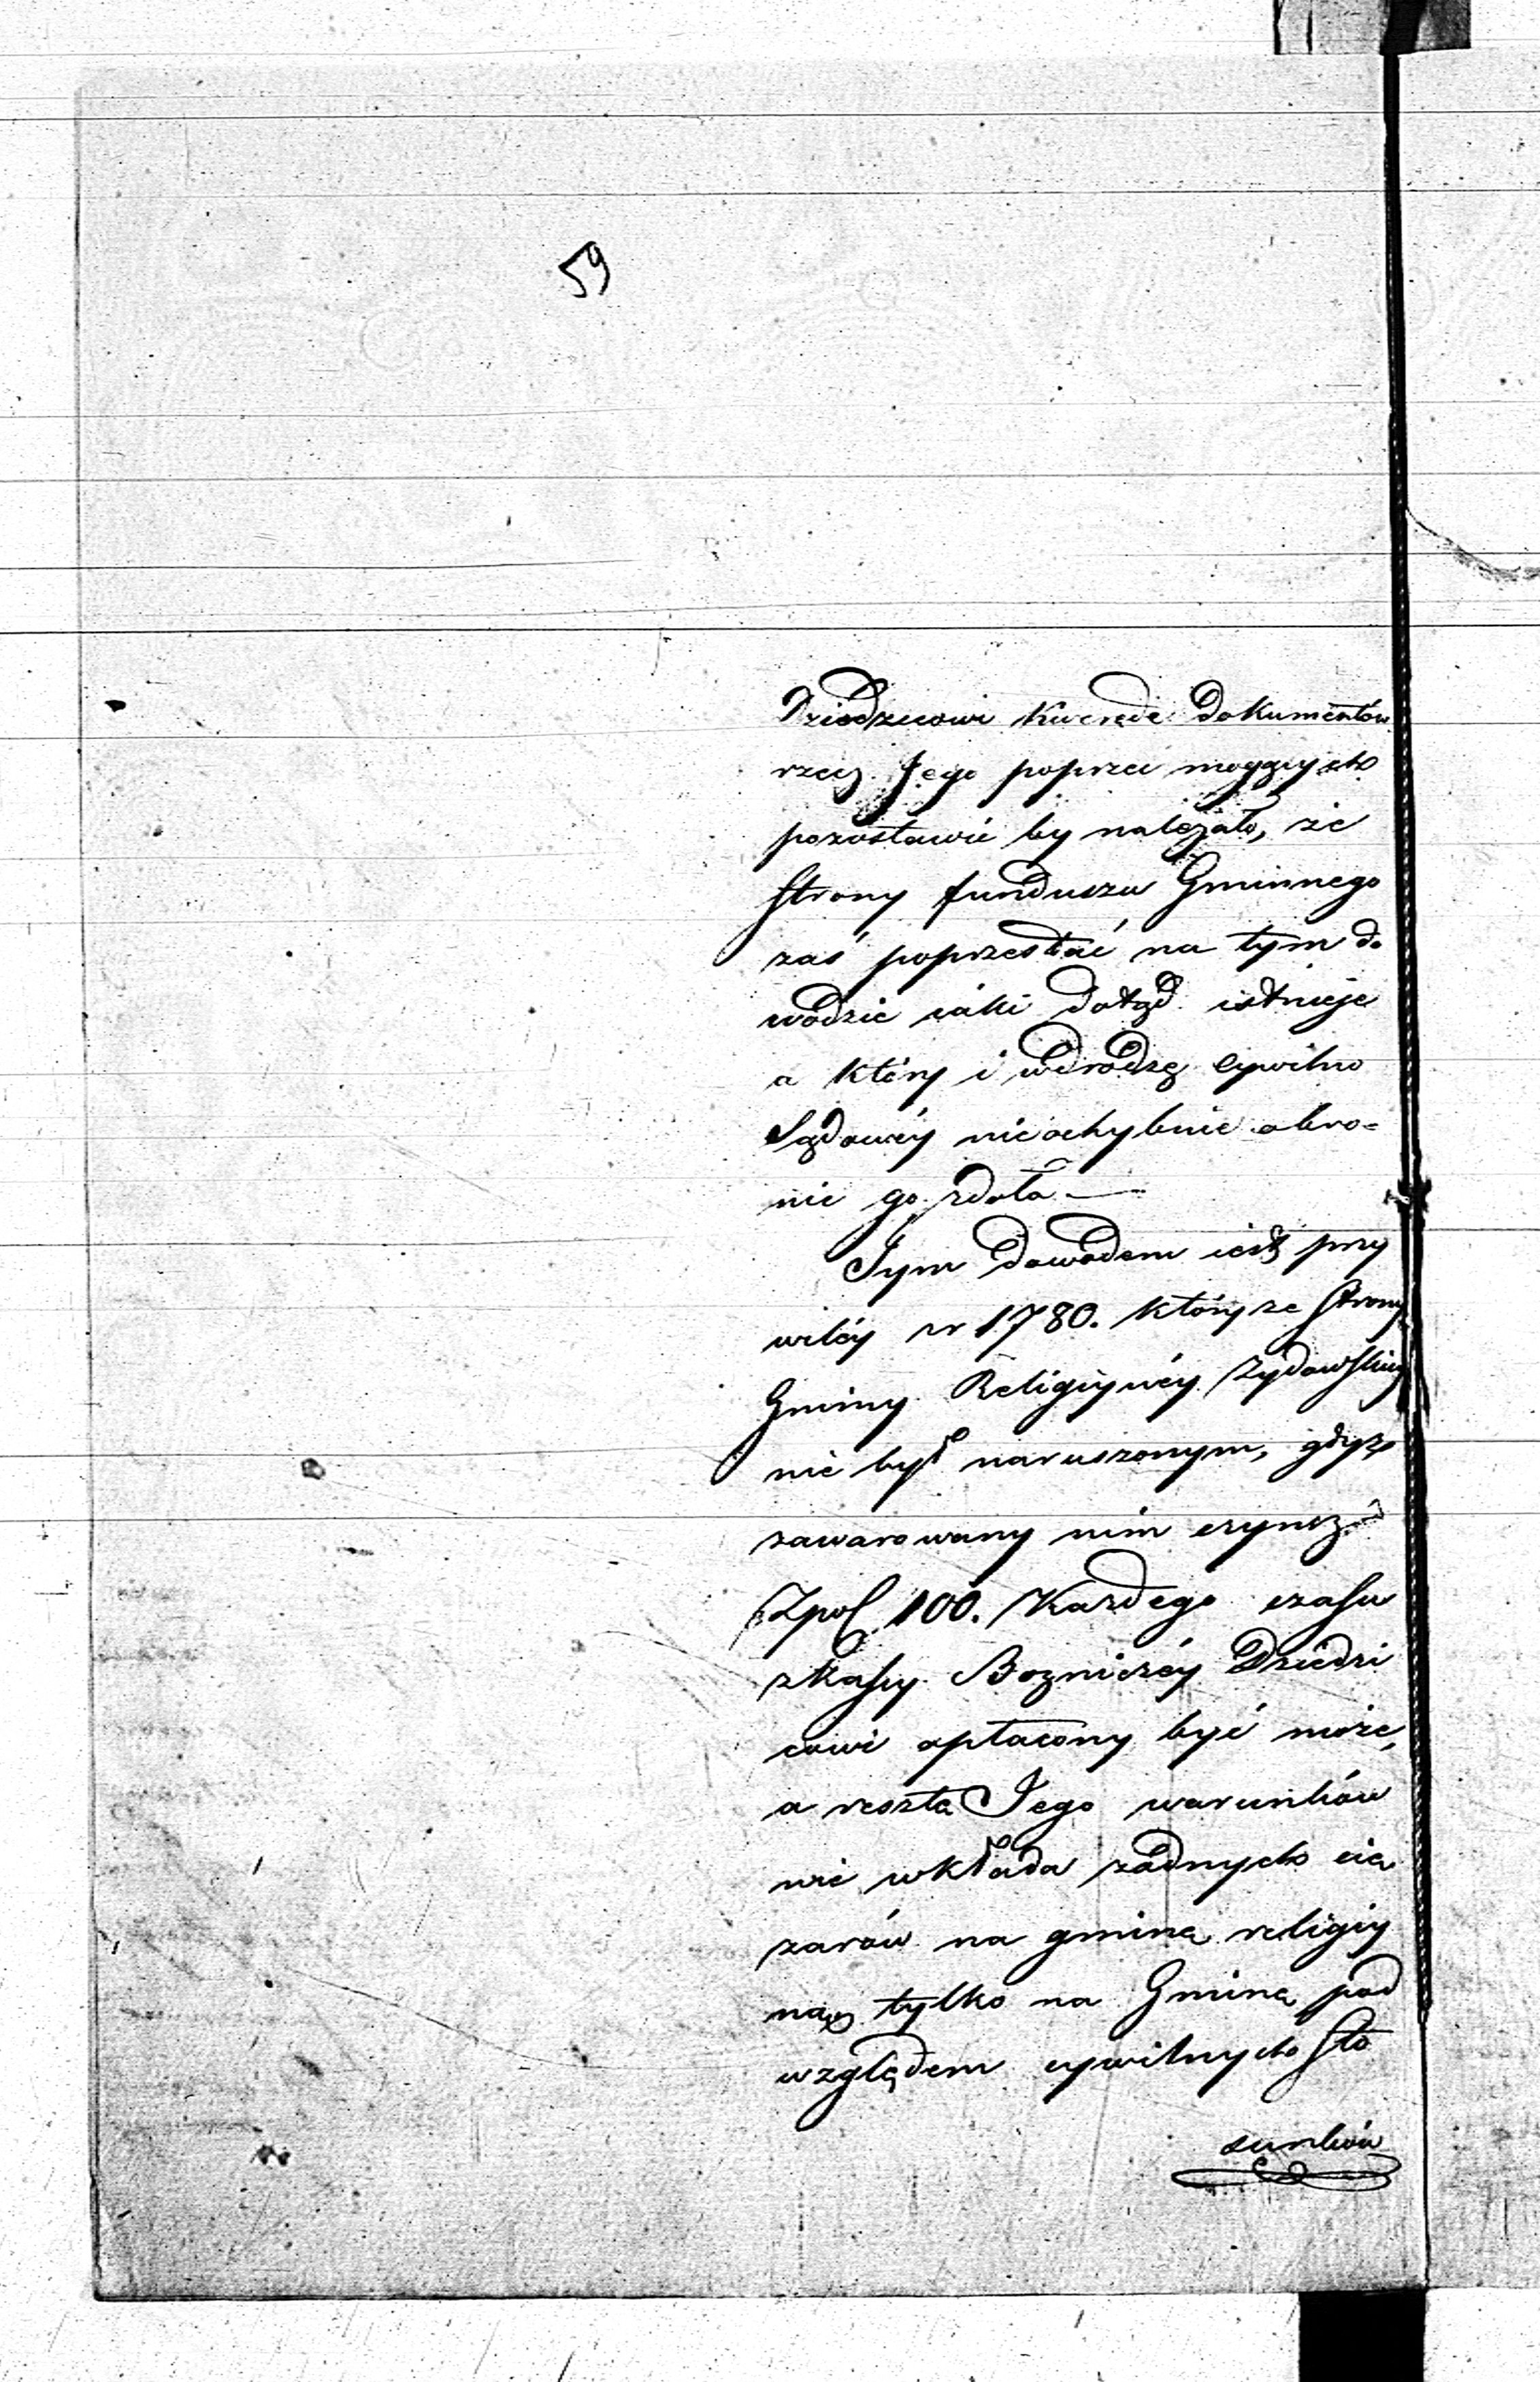 59
Dziedzicowi kwerędę Dokumentów
rzecz Jego poprzeć mogących
pozostawić by należało, ze
strony funduszu Gminnego
zaś poprzestać na tym do
wodzie iáki dotąd istnieje
a który i wdrodzę cywilno
Sądowéy nieochybnie obro=
nić go zdoła —
Tym dowodem iest przy
wiléy zr 1780. który ze strony
Gminy Religiynéy Żydowskiey
nie był naruszonym, gdyż
zawarowany nim czynsz
Zpol. 100. Każdego czasu
zkassy Bozniczéy Dziedzi
cowi opłacony być może,
a reszta Jego warunków
nie wkłada żadnych cię
żarów na gminę religiy
ną tylko na Gminę pod
względem cywilnych sto
sunków